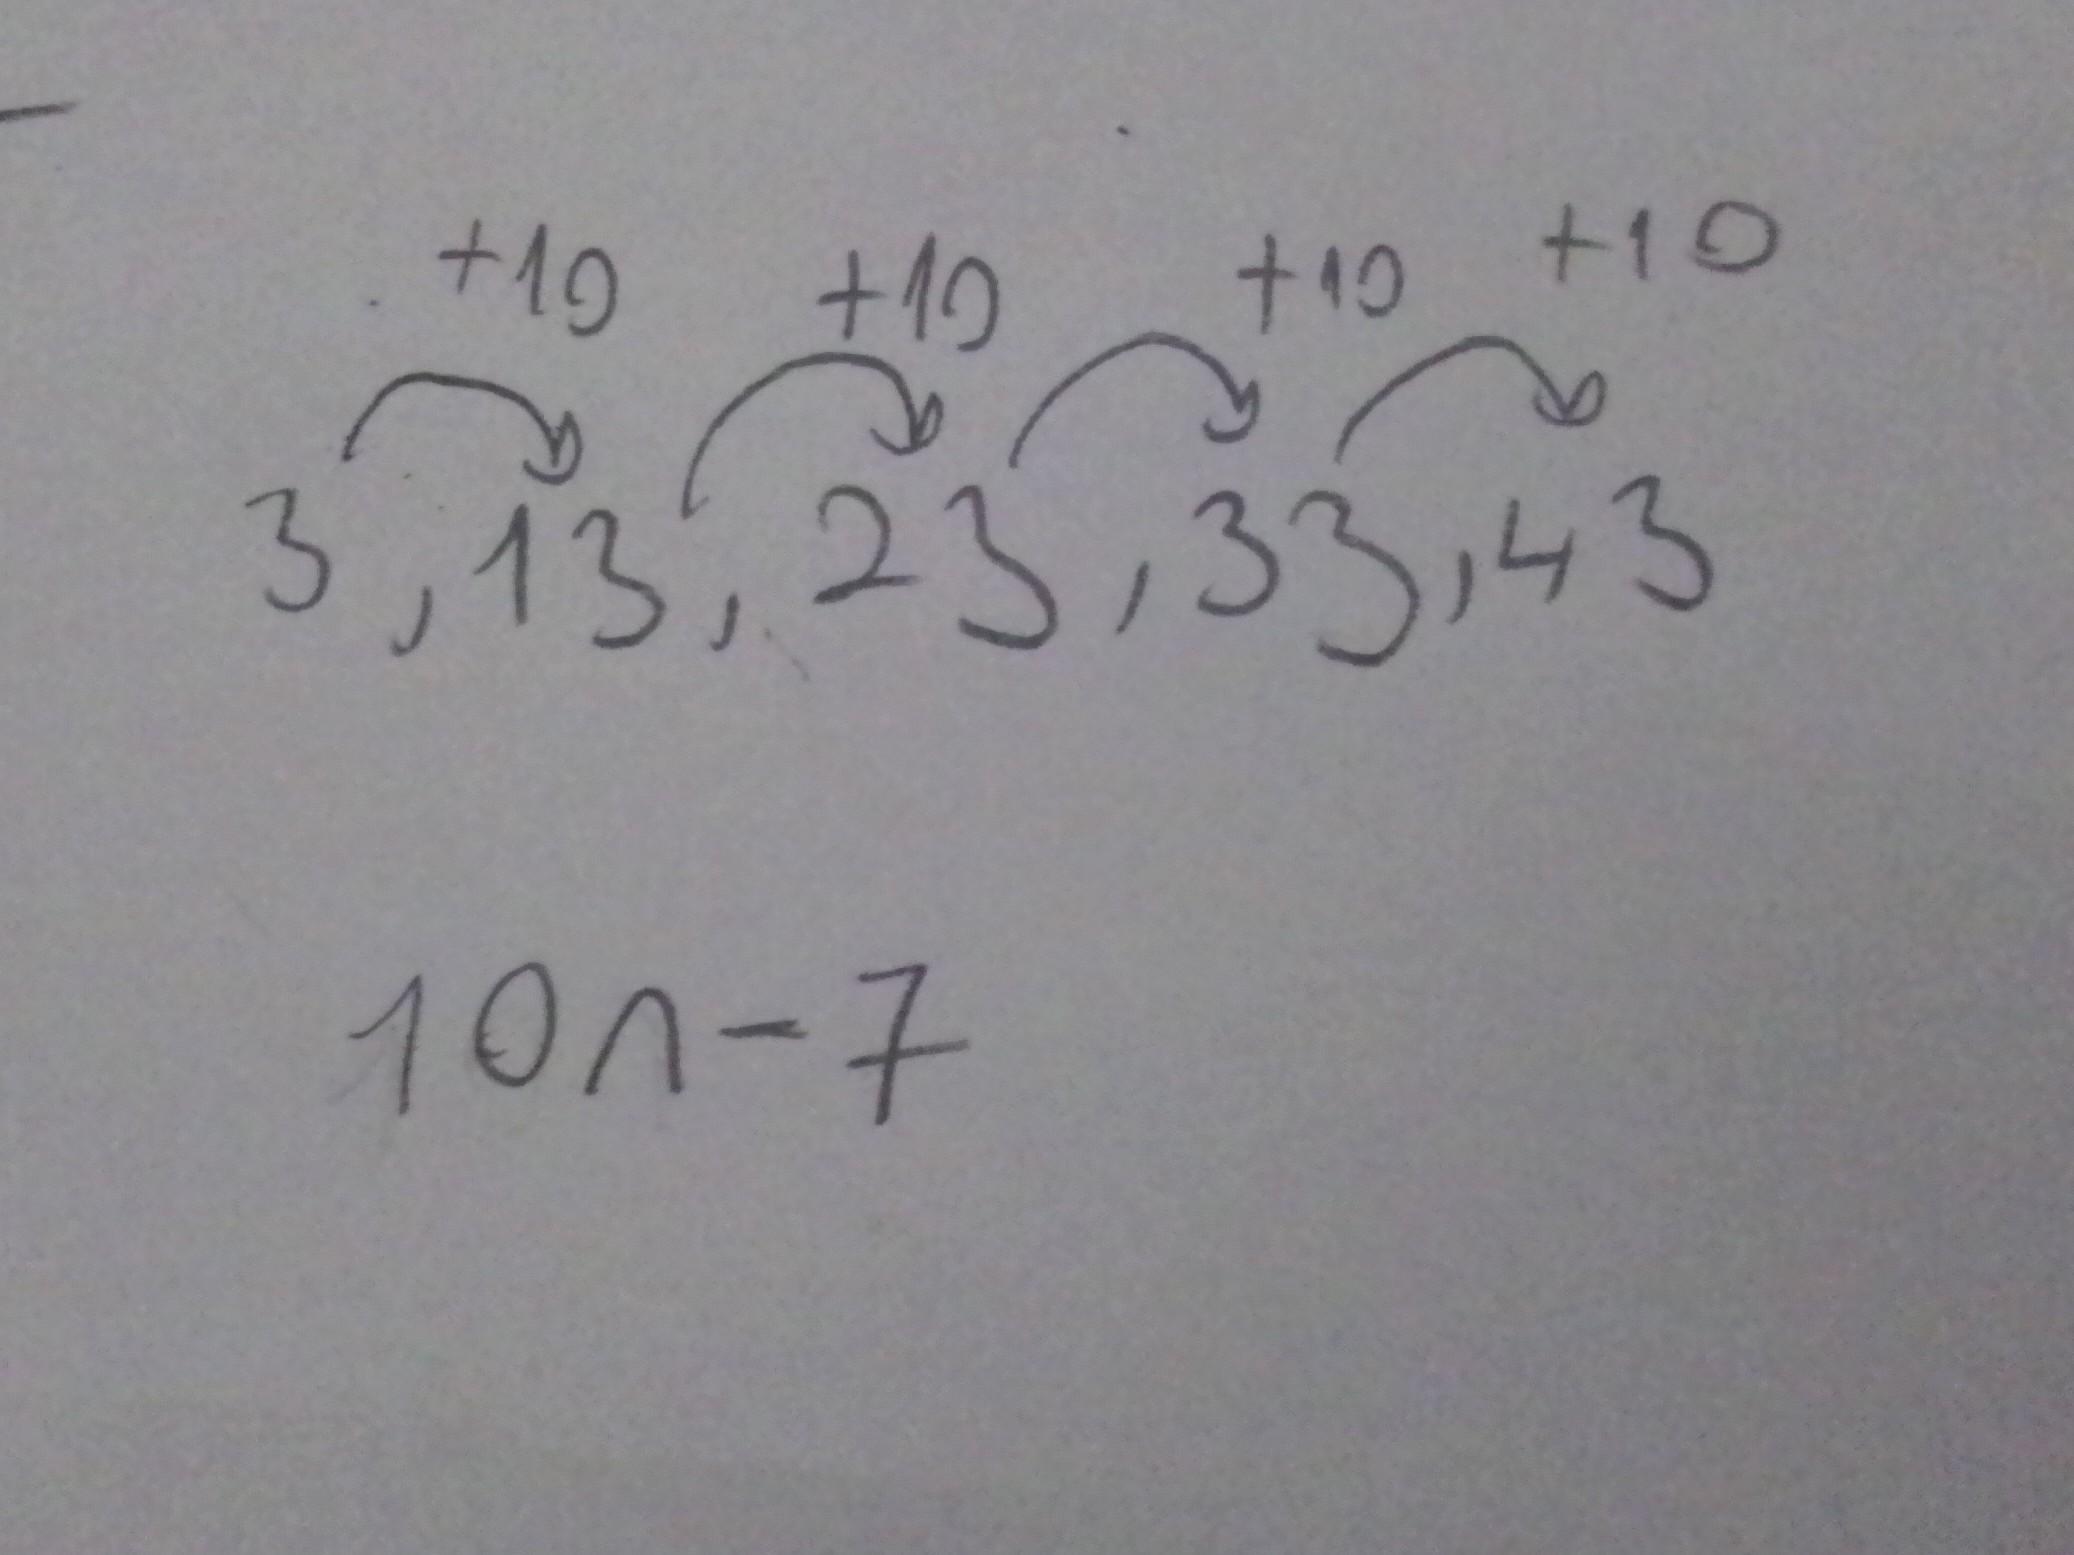 +10 +10 +10 +10
3, 13, 23, 33, 43
10n-7